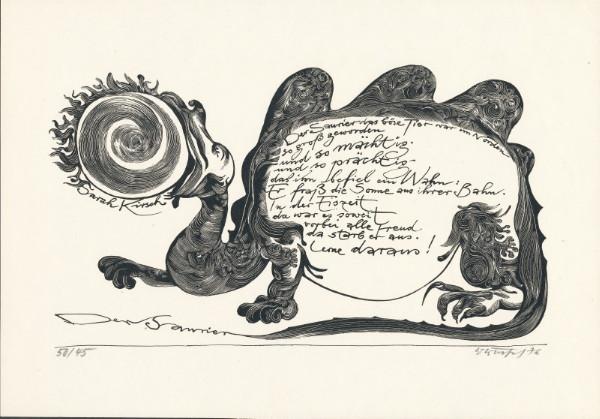 Der Saurier das böse Tier war im Norden
so groß geworden
und so mächtig
und so prächtig
das ihn befiel ein Wahn:
Er fraß die Sonne aus ihrer Bahn.
In der Eiszeit
da war es soweit
vorbei alle Freud
da starb er aus.
Lerne daraus!
Sarah Kirsch
Der Saurier
50/45
76